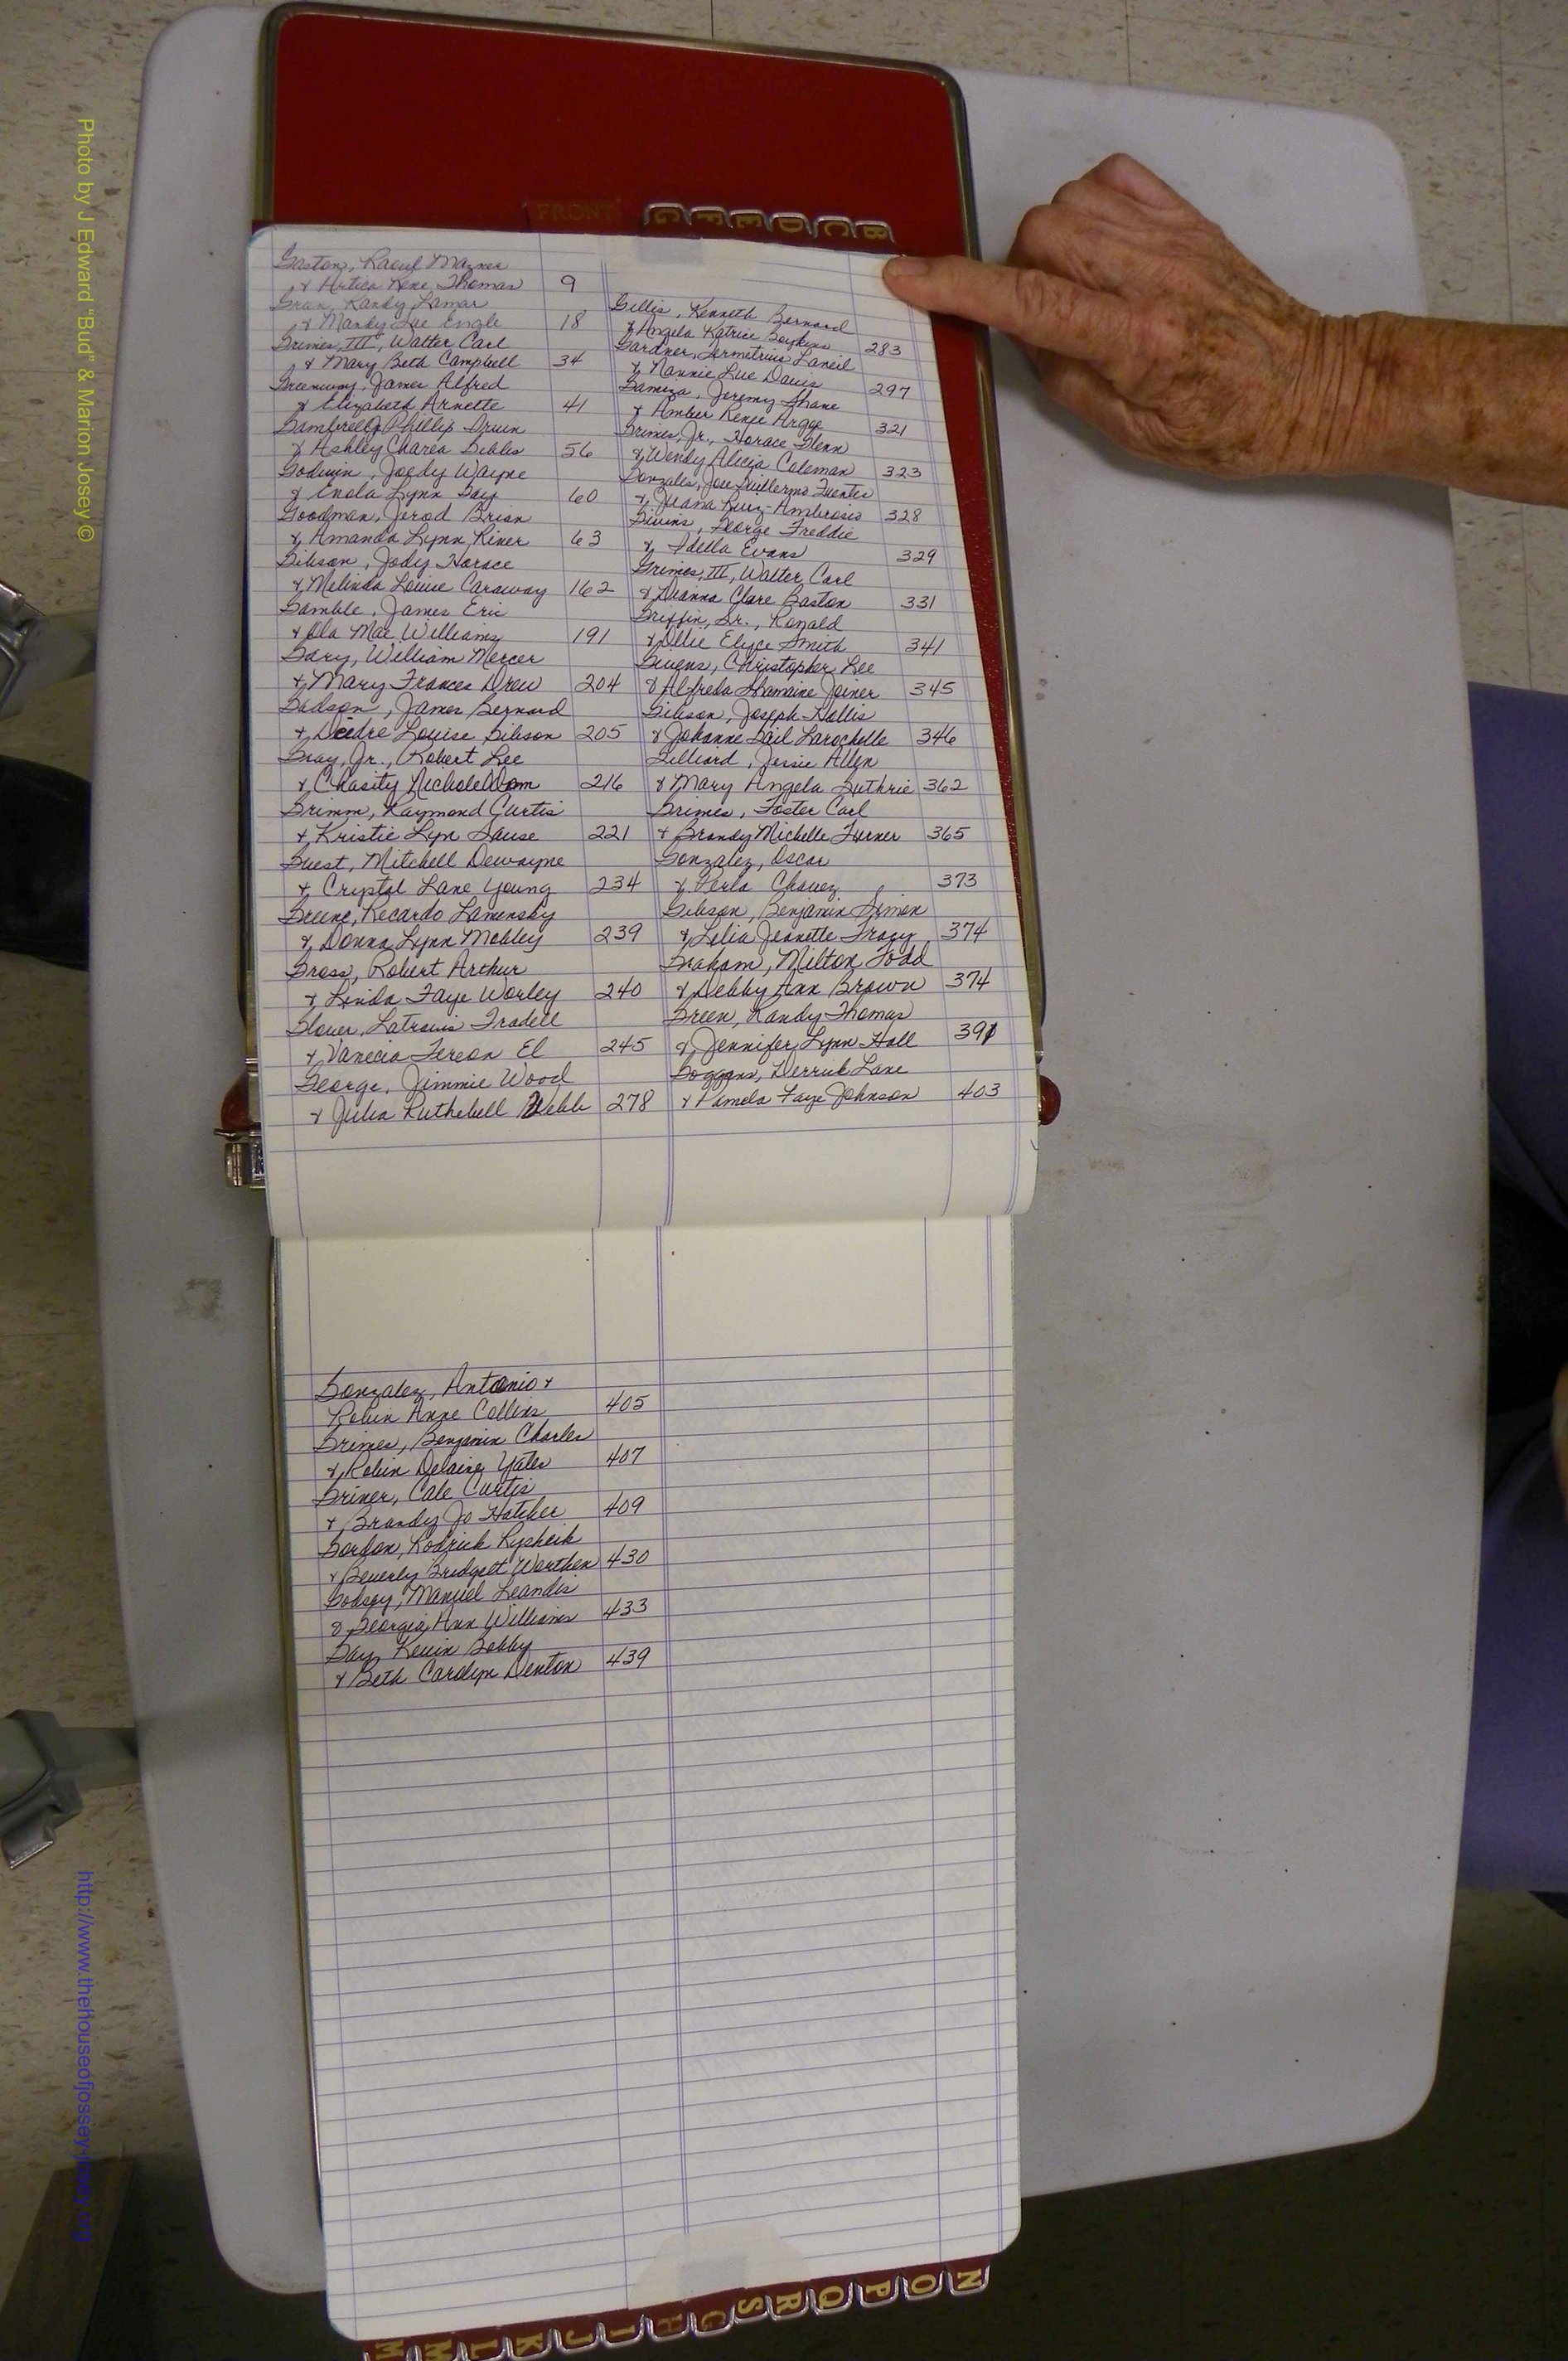 Photo by J Edward "Bud" & Marion Josey ©
FRONT
G F E D C B
Gaston, Raoul Mazner
& Artica Rene Thomas 9
Randy Lamar
& Mandy Sue Engle 18
Grimes, III, Walter Carl
& Mary Beth Campbell 34
Greenway, James Alfred
& Elizabeth Arnette 41
Gambrell, Phillip
& Ashley Charea Dibles 56
Godwin, Joedy Wayne
& Enola Lynn Gay 60
Goodman, Jerod Brian
& Amanda Lynn Riner 63
Gibson, Jody Horace
& Melinda Louise Caraway 162
Gamble, James Eric
& Ola Mae Williams 191
Gary, William Mercer
& Mary Frances Drew 204
Gadson, James Bernard
& Deidre Louise Gibson 205
Gray, Jr., Robert Lee
& Chasity Nichole 216
Grimm, Raymond Curtis
& Kristie Lyn Gause 221
Guest, Mitchell Dewayne
& Crystal Lane Young 234
Greene, Recardo Lamensky
& Donna Lynn Mobley 239
Gross, Robert Arthur
& Linda Faye Worley 240
Glover, Latravis Tradell
& Vanecia Tereon El 245
George, Jimmie Wood
& Julia Ruthebell Webb 278
Gillis, Kenneth Bernard
& Angela Katrice Boykins 283
Gardner, Laneil
& Nannie Lue Davis 297
Jeremy Shane
& Amber Renee 321
Grimes, Jr., Horace Glenn
& Wendy Alicia Coleman 323
Gonzales, Jose Guillermo Fuentes
& Juana Ruiz-Ambrosio 328
Givens, George Freddie
& Idella Evans 329
Grimes, III, Walter Carl
& Dianna Clare Baston 331
Griffin, Sr., Ronald
& Ollie Elyce Smith 341
Givens, Christopher Lee
& Alfreda Shamaine Joiner 345
Gibson, Joseph Hollis
& Johanne Gail Larochelle 346
Gilliard, Jessie Allen
& Mary Angela Guthrie 362
Grimes, Foster Carl
& Brandy Michelle Turner 365
Gonzalez, Oscar
& Perla Chavez 373
Gibson, Benjamin Simon
& Lelia Jeanette Tracy 374
Graham, Milton Todd
& Debby Ann Brown 374
Green, Randy Thomas
& Jennifer Lynn Hall 391
Goggans, Derrick Lane
& Pamela Faye Johnson 403
Gonzalez, Antonio &
Robin Anne Collins 405
Grimes, Benjamin Charles
& Robin Delaine Yates 407
Griner, Cale Curtis
& Brandy Jo Hatcher 409
Gordon, Rodrick Rysheik
& Beverly Bridgett Worthen 430
Godsey, Manuel Leandis
& Georgia Ann Williams 433
Gay, Kevin Bobby
& Beth Carolyn Denton 439
M M L K J I H G S R Q P O N
http://www.thehouseofjossey-josey.org